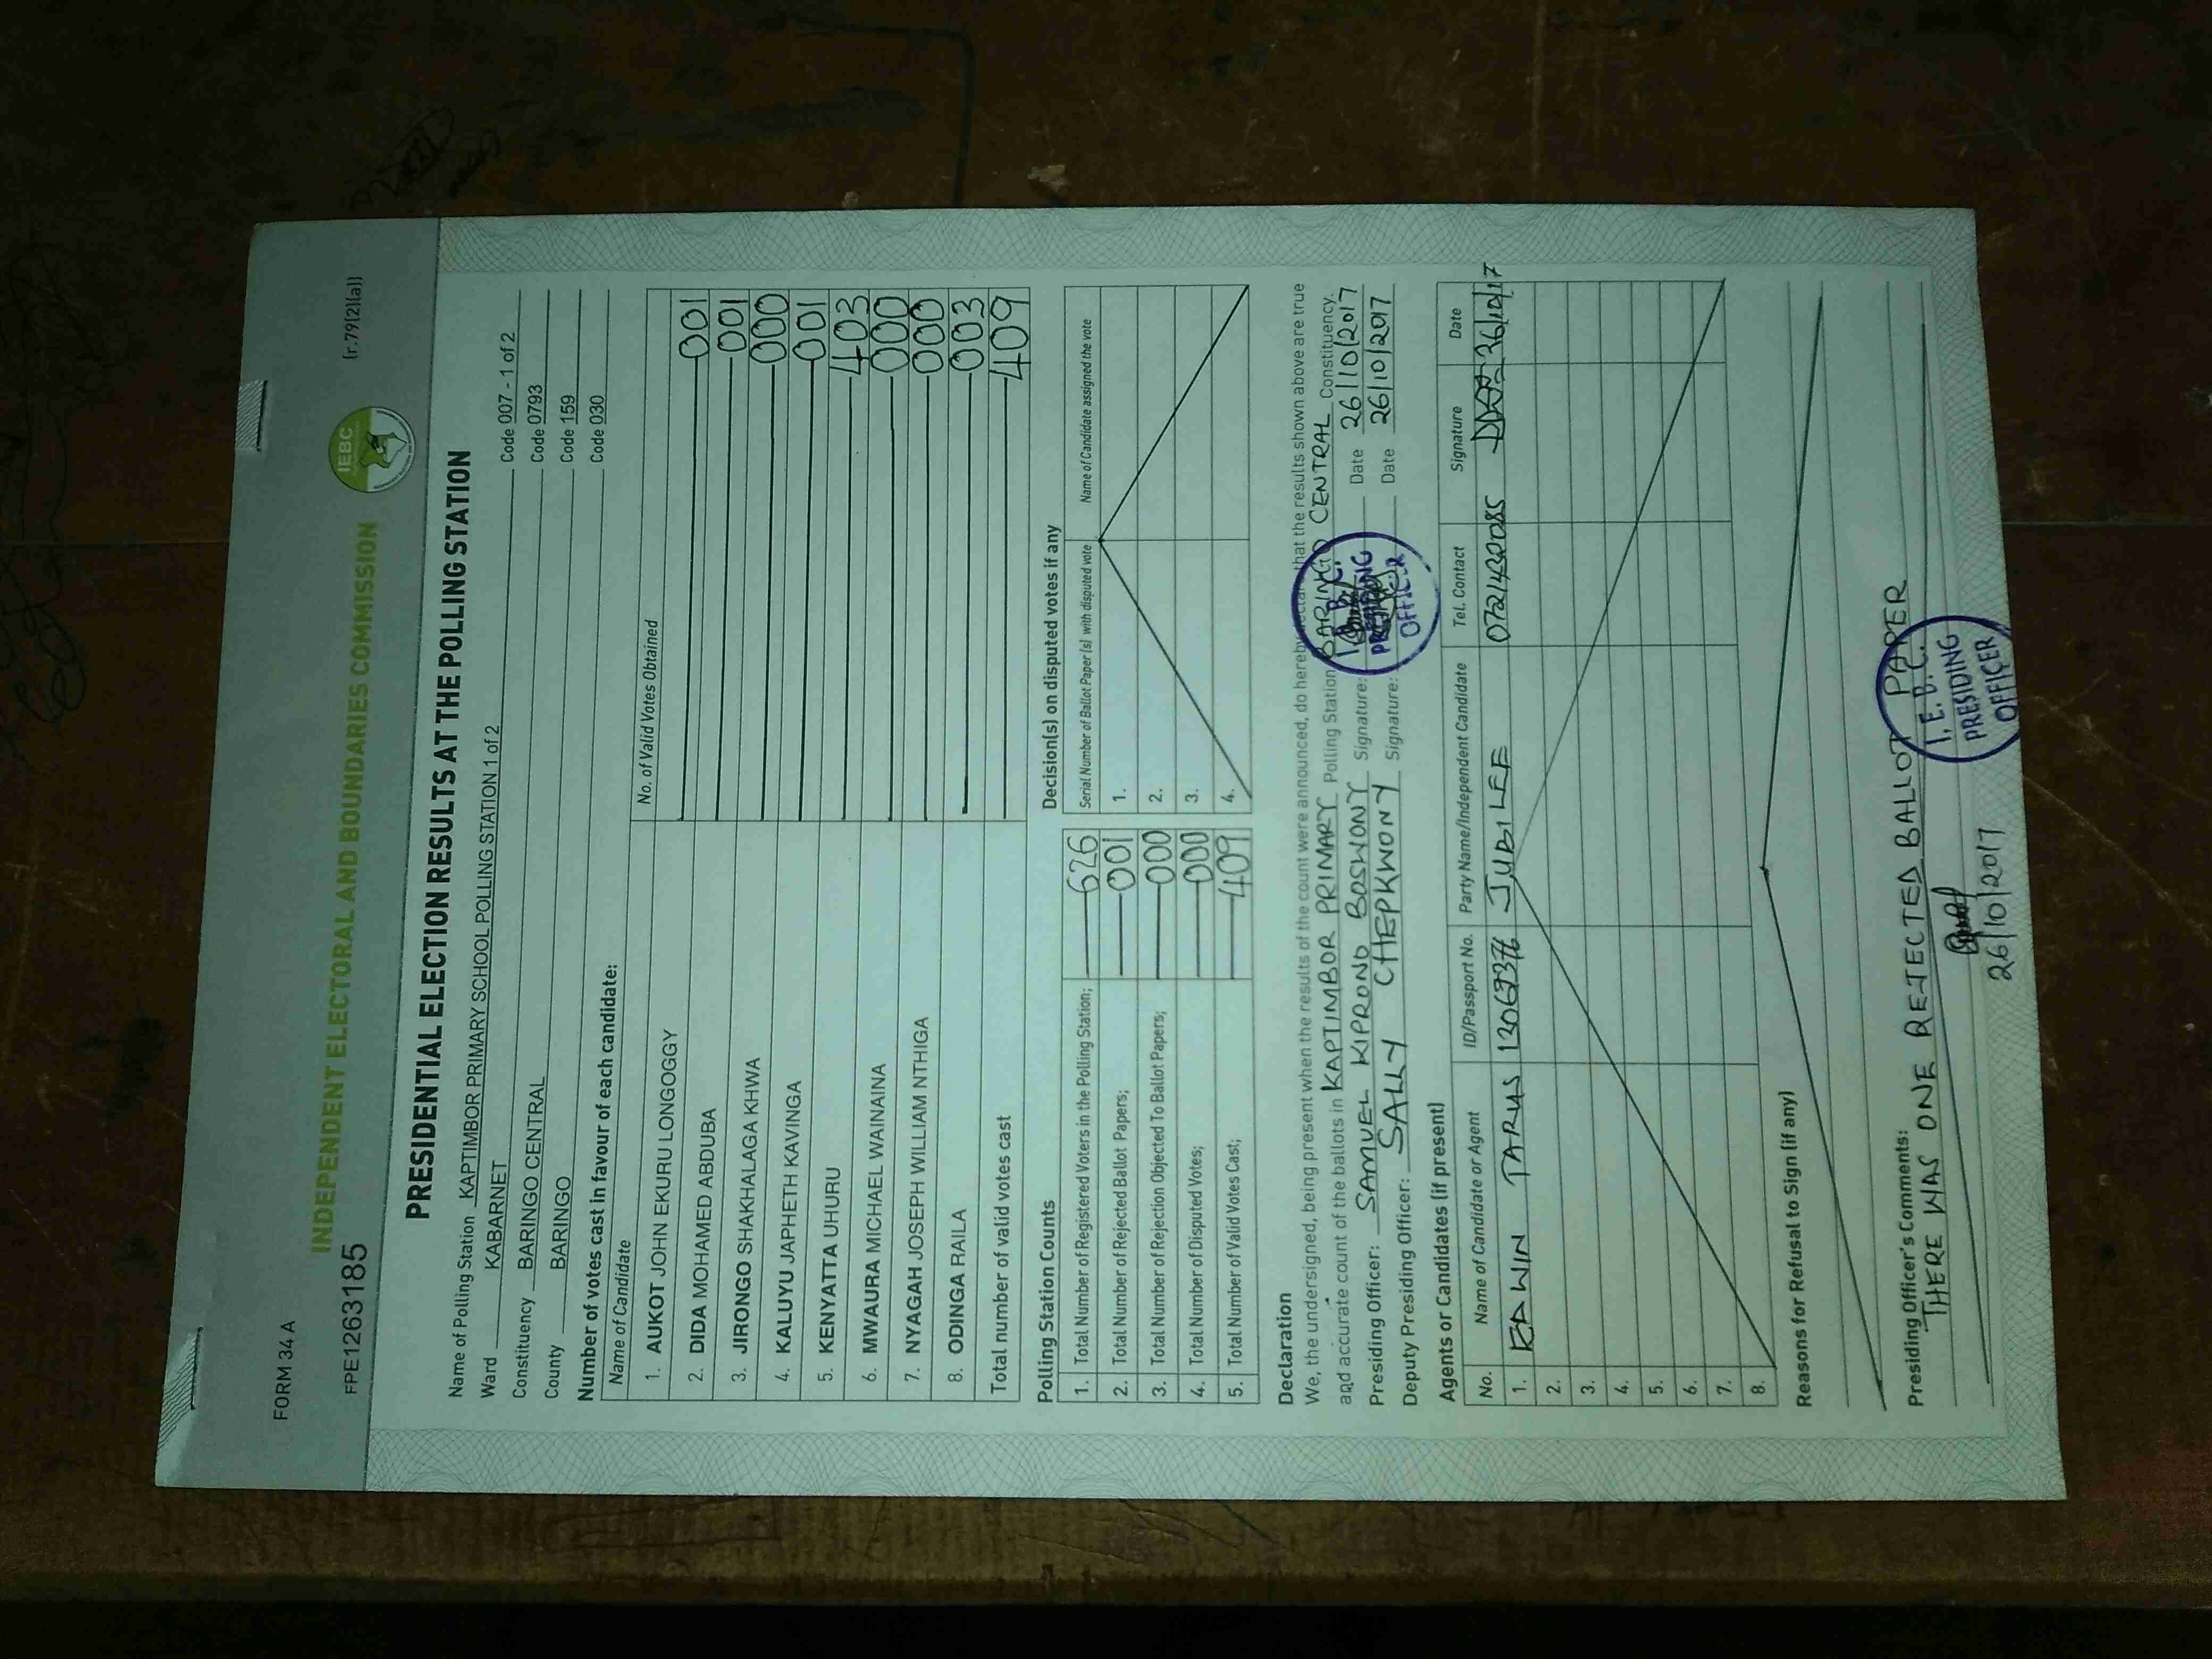 FORM 34 A
(r.79(2)(a))
INDEPENDENT ELECTORAL AND BOUNDARIES COMMISSION
IEBC
FPE1263185
PRESIDENTIAL ELECTION RESULTS AT THE POLLING STATION
Name of Polling Station KAPTIMBOR PRIMARY SCHOOL POLLING STATION 1 of 2 Code 007 - 1 of 2
Ward KABARNET Code 0793
Constituency BARINGO CENTRAL Code 159
County BARINGO Code 030
Number of votes cast in favour of each candidate:
Name of Candidate No. of Valid Votes Obtained
1. AUKOT JOHN EKURU LONGOGGY 001
2. DIDA MOHAMED ABDUBA 001
3. JIRONGO SHAKHALAGA KHWA 000
4. KALUYU JAPHETH KAVINGA 001
5. KENYATTA UHURU 403
6. MWAURA MICHAEL WAINAINA 000
7. NYAGAH JOSEPH WILLIAM NTHIGA 000
8. ODINGA RAILA 003
Total number of valid votes cast 409
Polling Station Counts
1. Total Number of Registered Voters in the Polling Station; 626
2. Total Number of Rejected Ballot Papers; 001
3. Total Number of Rejection Objected To Ballot Papers; 000
4. Total Number of Disputed Votes; 000
5. Total Number of Valid Votes Cast; 409
Decision(s) on disputed votes if any
Serial Number of Ballot Paper(s) with disputed vote Name of Candidate assigned the vote
1.
2.
3.
4.
Declaration
We, the undersigned, being present when the results of the count were announced, do hereby declare that the results shown above are true
and accurate count of the ballots in KAPTIMBOR PRIMARY Polling Station BARINGO CENTRAL Constituency.
Presiding Officer: SAMUEL KIPRONO BOSWONY Signature: Date 26/10/2017
Deputy Presiding Officer: SALLY CHEPKWONY Signature: Date 26/10/2017
I. E. B. C.
PRESIDING
OFFICER
Agents or Candidates (if present)
No. Name of Candidate or Agent ID/Passport No. Party Name/Independent Candidate Tel. Contact Signature Date
1. EDWIN TARUS 13067376 JUBILEE 0721432085 26/10/17
2.
3.
4.
5.
6.
7.
8.
Reasons for Refusal to Sign (if any)
Presiding Officer's Comments:
THERE WAS ONE REJECTED BALLOT PAPER
26/10/2017
I. E. B. C.
PRESIDING
OFFICER